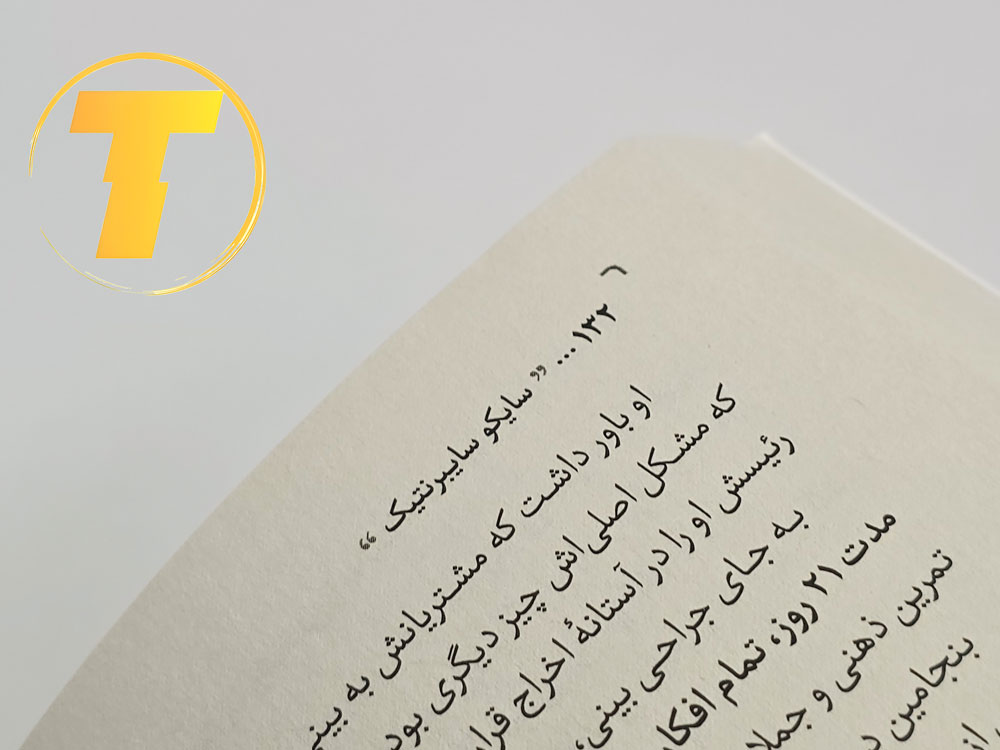 T
۱۳۲ ... " سایکو سایبرنتیک "
او باور داشت که مشتریانش به بینی
که مشکل اصلی‌اش چیز دیگری بود
رئیسش او را در آستانهٔ اخراج قرار
به جای جراحی بینی،
مدت ۲۱ روز، تمام افکار
تمرین ذهنی و
بنجامین